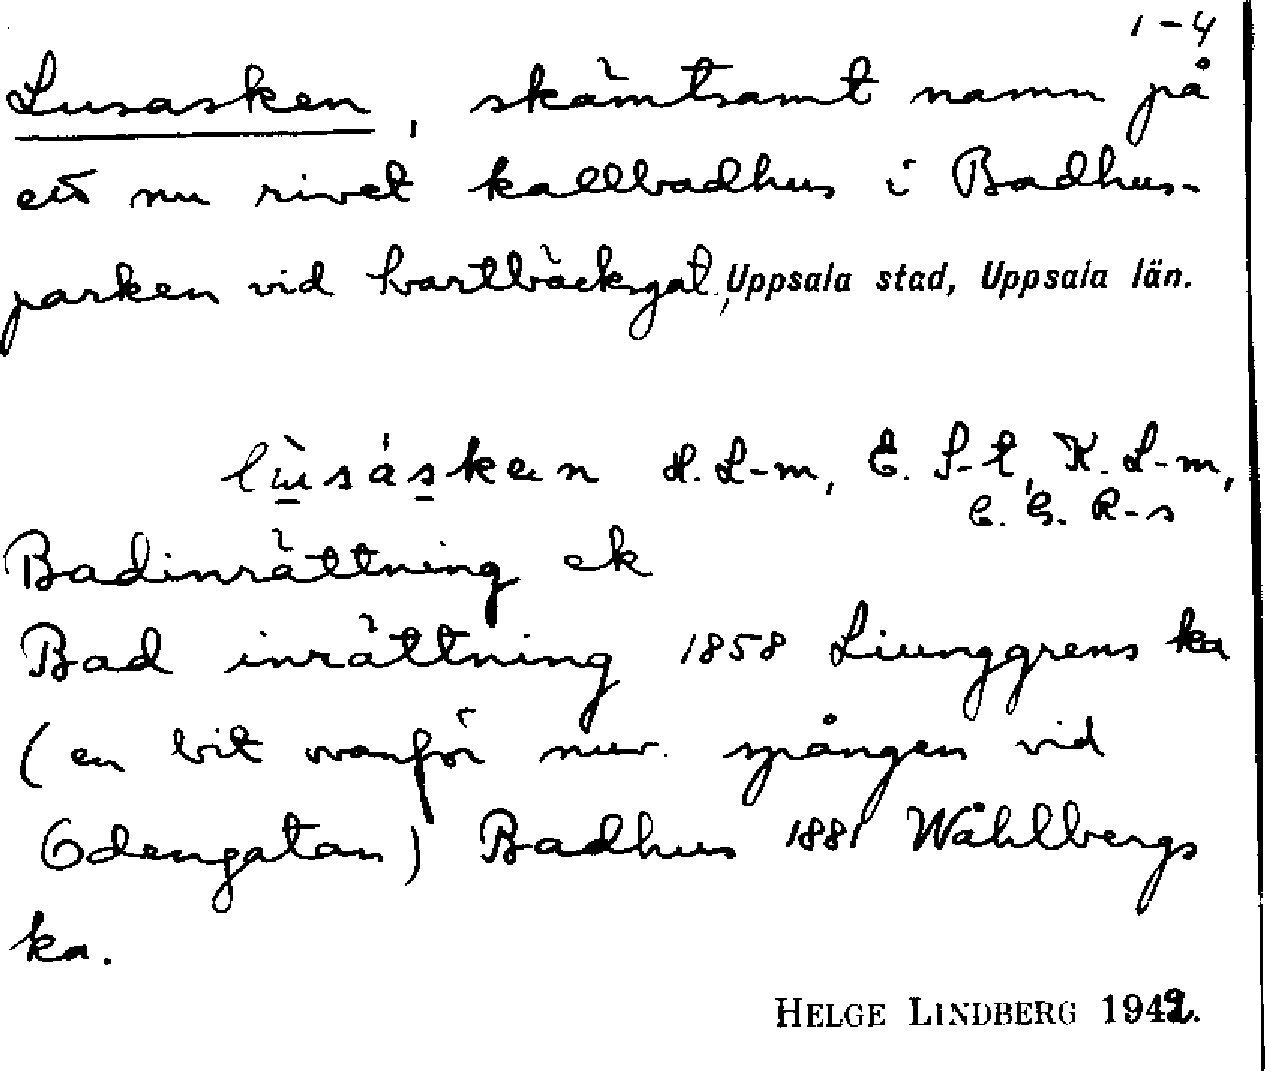 1-4
Lusasken, skämtsamt namn på
ett nu rivet kallbadhus i Badhus-
parken vid Svartbäcksgat, Uppsala stad, Uppsala län.
H. L-m, E. S-t, K. L-m,
C. G. R-s
Badinrättning ek
Bad inrättning 1858 Liunggrens ka
(en bit ovanför nuv. spången vid
Odengatan) Badhus 1881 Wåhlbergs
ka.
HELGE LINDBERG 1942.